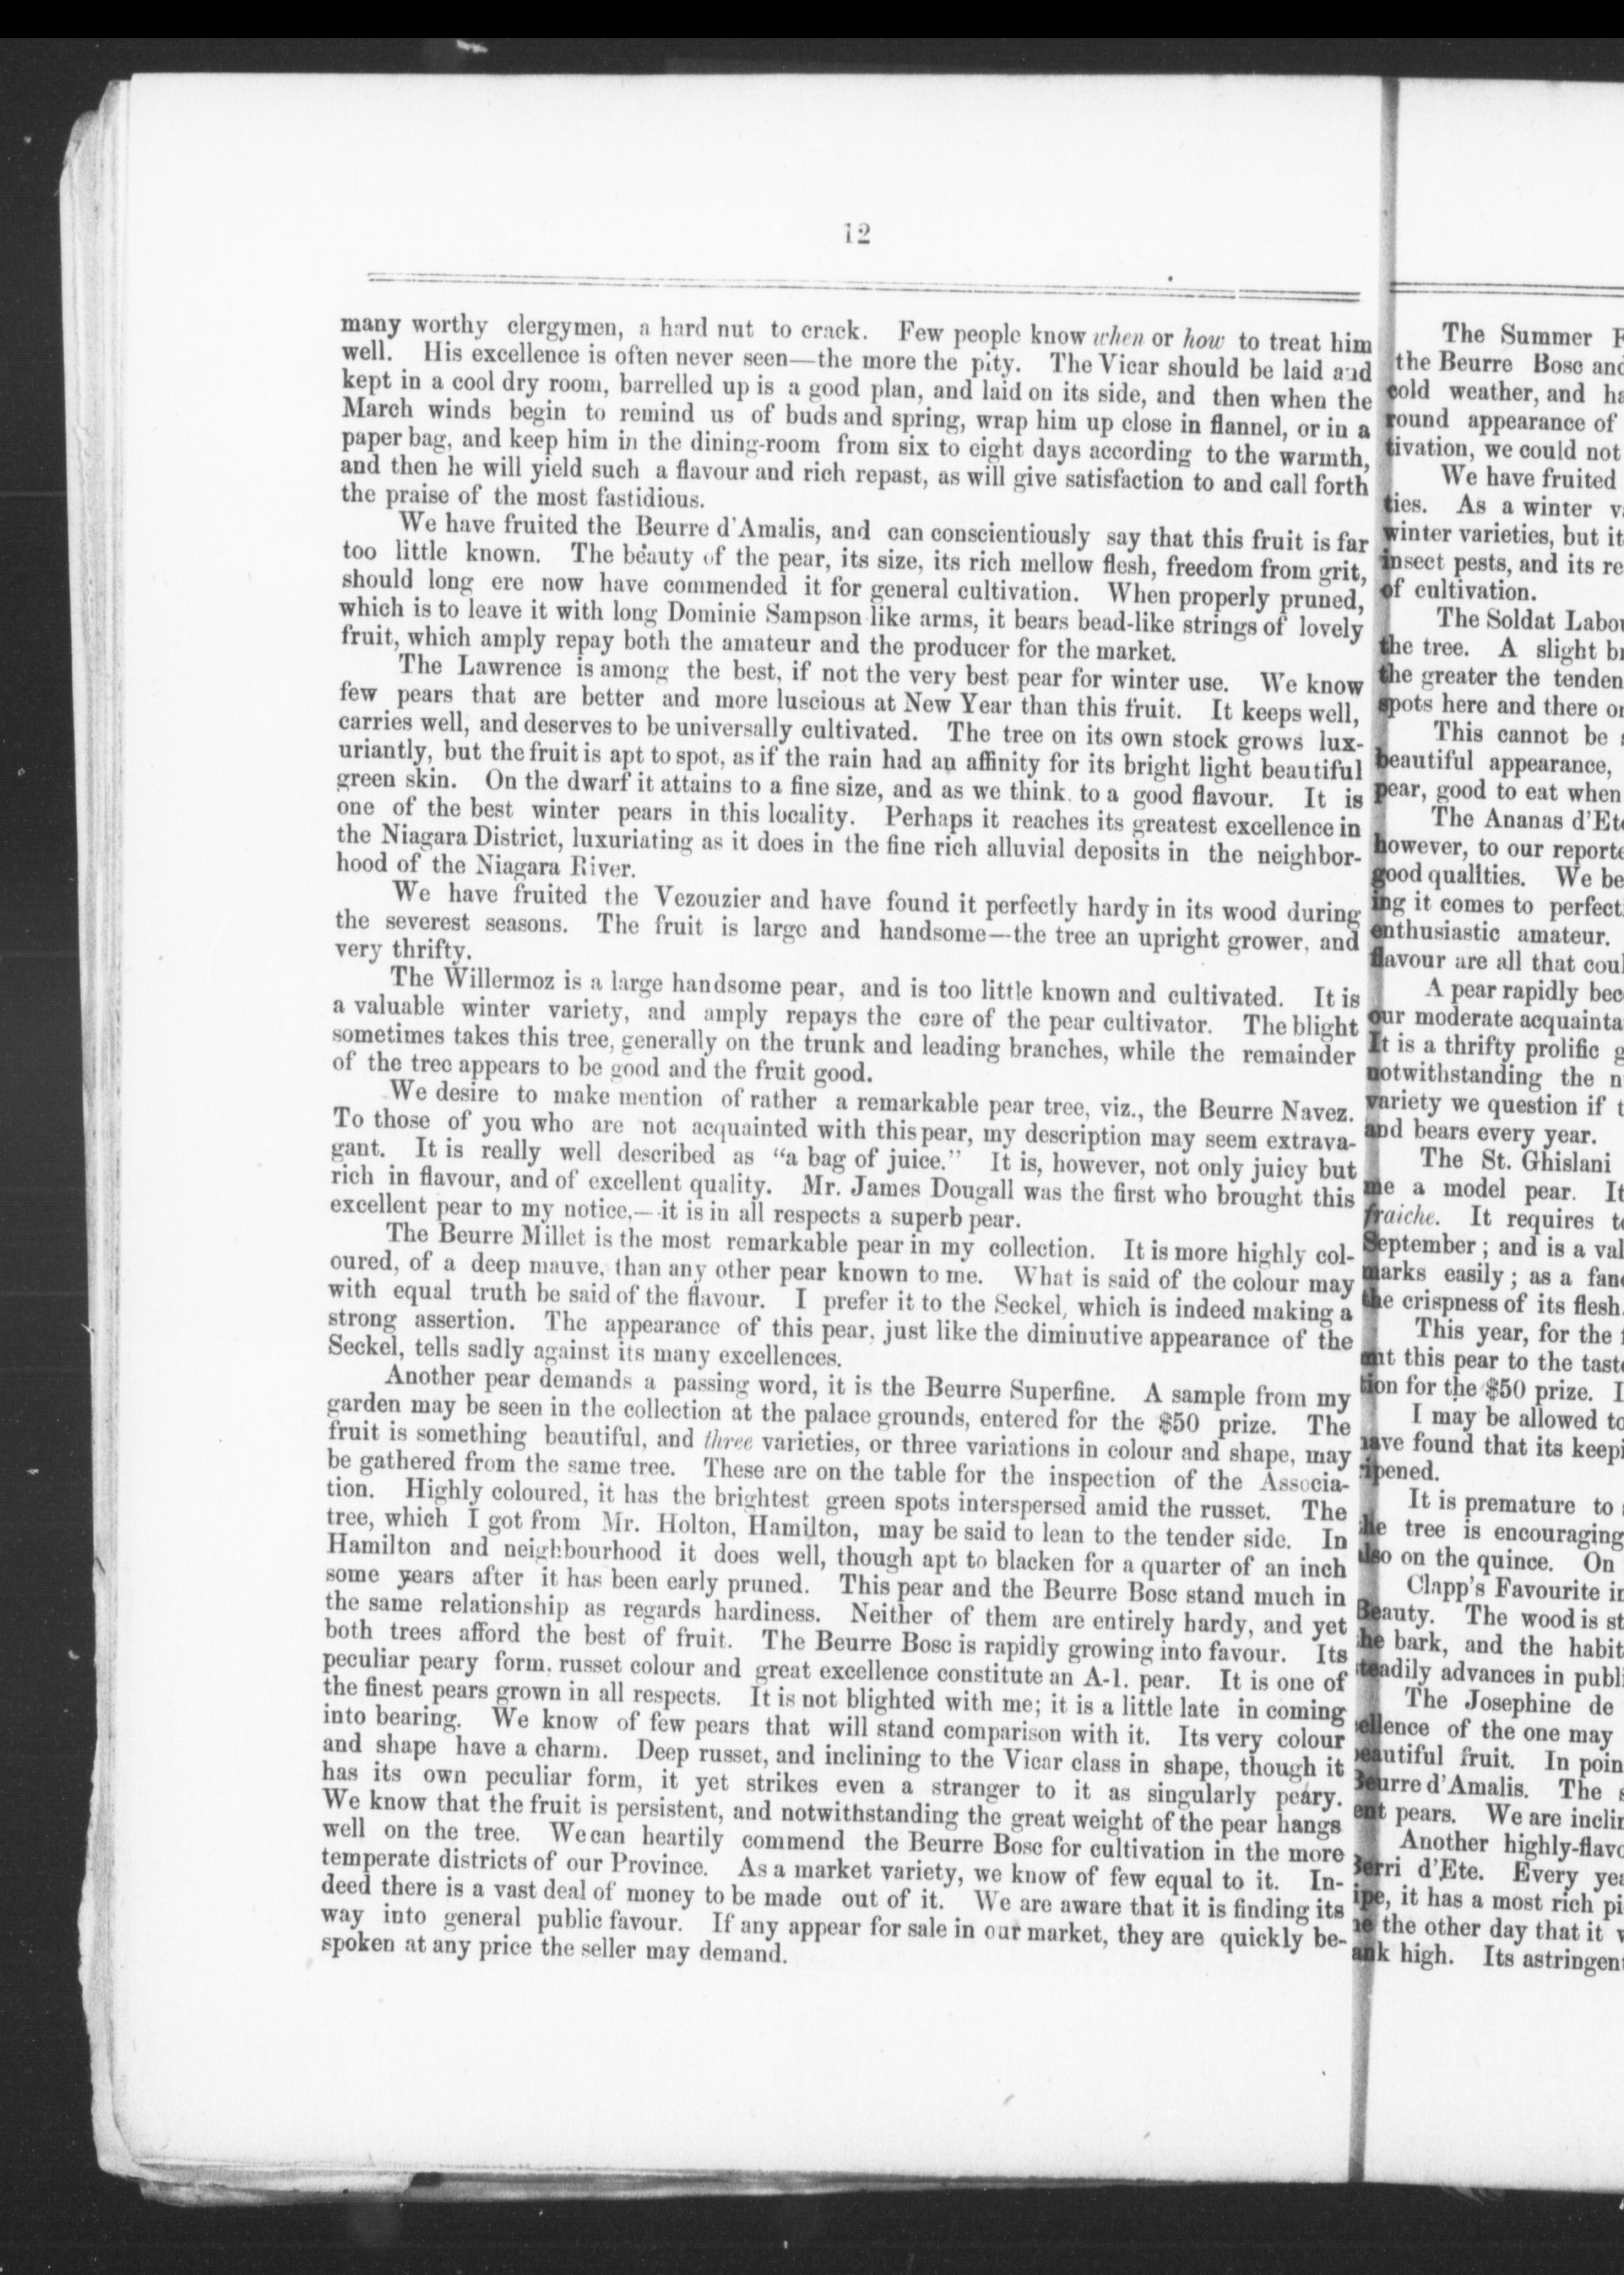 12
many worthy clergymen, a hard nut to crack. Few people know when or how to treat him
well. His excellence is often never seen—the more the pity. The Vicar should be laid and
kept in a cool dry room, barrelled up is a good plan, and laid on its side, and then when the
March winds begin to remind us of buds and spring, wrap him up close in flannel, or in a
paper bag, and keep him in the dining-room from six to eight days according to the warmth,
and then he will yield such a flavour and rich repast, as will give satisfaction to and call forth
the praise of the most fastidious.
We have fruited the Beurre d'Amalis, and can conscientiously say that this fruit is far
too little known. The beauty of the pear, its size, its rich mellow flesh, freedom from grit,
should long ere now have commended it for general cultivation. When properly pruned,
which is to leave it with long Dominie Sampson like arms, it bears bead-like strings of lovely
fruit, which amply repay both the amateur and the producer for the market.
The Lawrence is among the best, if not the very best pear for winter use. We know
few pears that are better and more luscious at New Year than this fruit. It keeps well,
carries well, and deserves to be universally cultivated. The tree on its own stock grows lux-
uriantly, but the fruit is apt to spot, as if the rain had an affinity for its bright light beautiful
green skin. On the dwarf it attains to a fine size, and as we think to a good flavour. It is
one of the best winter pears in this locality. Perhaps it reaches its greatest excellence in
the Niagara District, luxuriating as it does in the fine rich alluvial deposits in the neighbor-
hood of the Niagara River.
We have fruited the Vezouzier and have found it perfectly hardy in its wood during
the severest seasons. The fruit is large and handsome—the tree an upright grower, and
very thrifty.
The Willermoz is a large handsome pear, and is too little known and cultivated. It is
a valuable winter variety, and amply repays the care of the pear cultivator. The blight
sometimes takes this tree, generally on the trunk and leading branches, while the remainder
of the tree appears to be good and the fruit good.
We desire to make mention of rather a remarkable pear tree, viz., the Beurre Navez.
To those of you who are not acquainted with this pear, my description may seem extrava-
gant. It is really well described as "a bag of juice." It is, however, not only juicy but
rich in flavour, and of excellent quality. Mr. James Dougall was the first who brought this
excellent pear to my notice,—it is in all respects a superb pear.
The Beurre Millet is the most remarkable pear in my collection. It is more highly col-
oured, of a deep mauve, than any other pear known to me. What is said of the colour may
with equal truth be said of the flavour. I prefer it to the Seckel, which is indeed making a
strong assertion. The appearance of this pear, just like the diminutive appearance of the
Seckel, tells sadly against its many excellences.
Another pear demands a passing word, it is the Beurre Superfine. A sample from my
garden may be seen in the collection at the palace grounds, entered for the $50 prize. The
fruit is something beautiful, and three varieties, or three variations in colour and shape, may
be gathered from the same tree. These are on the table for the inspection of the Associa-
tion. Highly coloured, it has the brightest green spots interspersed amid the russet. The
tree, which I got from Mr. Holton, Hamilton, may be said to lean to the tender side. In
Hamilton and neighbourhood it does well, though apt to blacken for a quarter of an inch
some years after it has been early pruned. This pear and the Beurre Bosc stand much in
the same relationship as regards hardiness. Neither of them are entirely hardy, and yet
both trees afford the best of fruit. The Beurre Bosc is rapidly growing into favour. Its
peculiar peary form, russet colour and great excellence constitute an A-1. pear. It is one of
the finest pears grown in all respects. It is not blighted with me; it is a little late in coming
into bearing. We know of few pears that will stand comparison with it. Its very colour
and shape have a charm. Deep russet, and inclining to the Vicar class in shape, though it
has its own peculiar form, it yet strikes even a stranger to it as singularly peary.
We know that the fruit is persistent, and notwithstanding the great weight of the pear hangs
well on the tree. We can heartily commend the Beurre Bosc for cultivation in the more
temperate districts of our Province. As a market variety, we know of few equal to it. In-
deed there is a vast deal of money to be made out of it. We are aware that it is finding its
way into general public favour. If any appear for sale in our market, they are quickly be-
spoken at any price the seller may demand.
The Summer
the Beurre Bosc and
cold weather, and
round appearance of
tivation, we could not
We have fruited
ties. As a winter
winter varieties, but it
insect pests, and its
of cultivation.
The Soldat
the tree. A slight
the greater the
spots here and there
This cannot be
beautiful appearance,
pear, good to eat when
The Ananas
however, to our
good qualities. We
ing it comes to
enthusiastic amateur.
flavour are all that
A pear rapidly
our moderate
It is a thrifty prolific
notwithstanding the
variety we question if
and bears every year.
The St. Ghislani
me a model pear. It
fraiche. It requires
September; and is a
marks easily; as a
the crispness of its flesh
This year, for the
this pear to the
tion for the $50 prize.
I may be allowed to
have found that its
ripened.
It is premature to
the tree is encouraging
also on the quince. On
Clapp's Favourite
Beauty. The wood is
the bark, and the
steadily advances in
The Josephine de
of the one may
beautiful fruit. In
Beurre d'Amalis. The
pears. We are
Another
d'Ete. Every
it has a most rich
the other day that it
high. Its